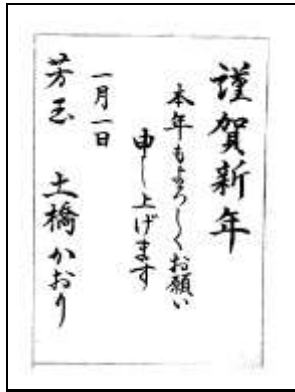 謹賀新年
本年もよろしくお願い
申し上げます
一月一日
芳玉 土橋かおり